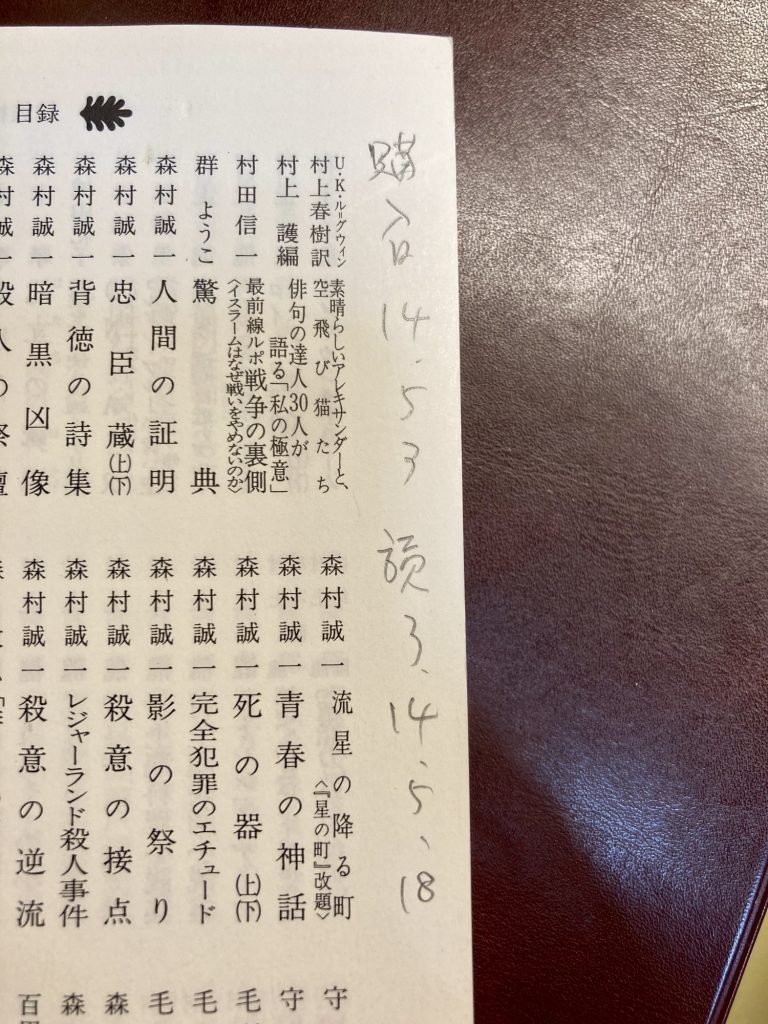 購入日 14.5 3 読了、14.5、18
目録
U・K・ル=グウィン 素晴らしいアレキサンダーと、
村上春樹訳 空飛び猫たち
村上 護編 俳句の達人30人が
語る「私の極意」
村田信一 最前線ルポ 戦争の裏側
〈イスラームはなぜ戦いをやめないのか〉
群 ようこ 驚典
森村誠一 人間の証明
森村誠一 忠臣蔵(上)(下)
森村誠一 背徳の詩集
森村誠一 暗黒凶像
森村誠一 殺人の祭壇
森村誠一 流星の降る町
〈『星の町』改題〉
森村誠一 青春の神話
森村誠一 死の器(上)(下)
森村誠一 完全犯罪のエチュード
森村誠一 影の祭り
森村誠一 殺意の接点
森村誠一 レジャーランド殺人事件
森村誠一 殺意の逆流
守
守
毛
毛
森
森
百